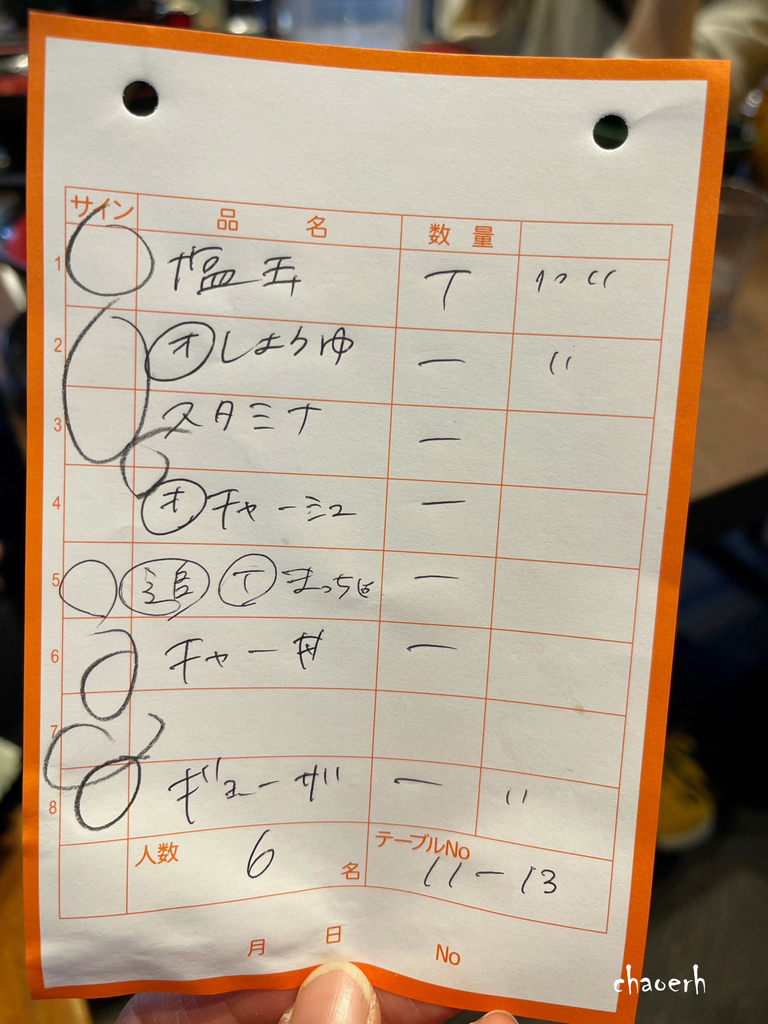 サイン 品名 数量
1 塩玉 T 〃〃
2 オ しょうゆ 一 〃
3 スタミナ 一
4 オ チャーシュー 一
5 追 T まっちば 一
6 チャー丼 一
7
8 ギョーザ 一 〃
人数 6 名 テーブルNo 11-13
月 日 No
chaoerh